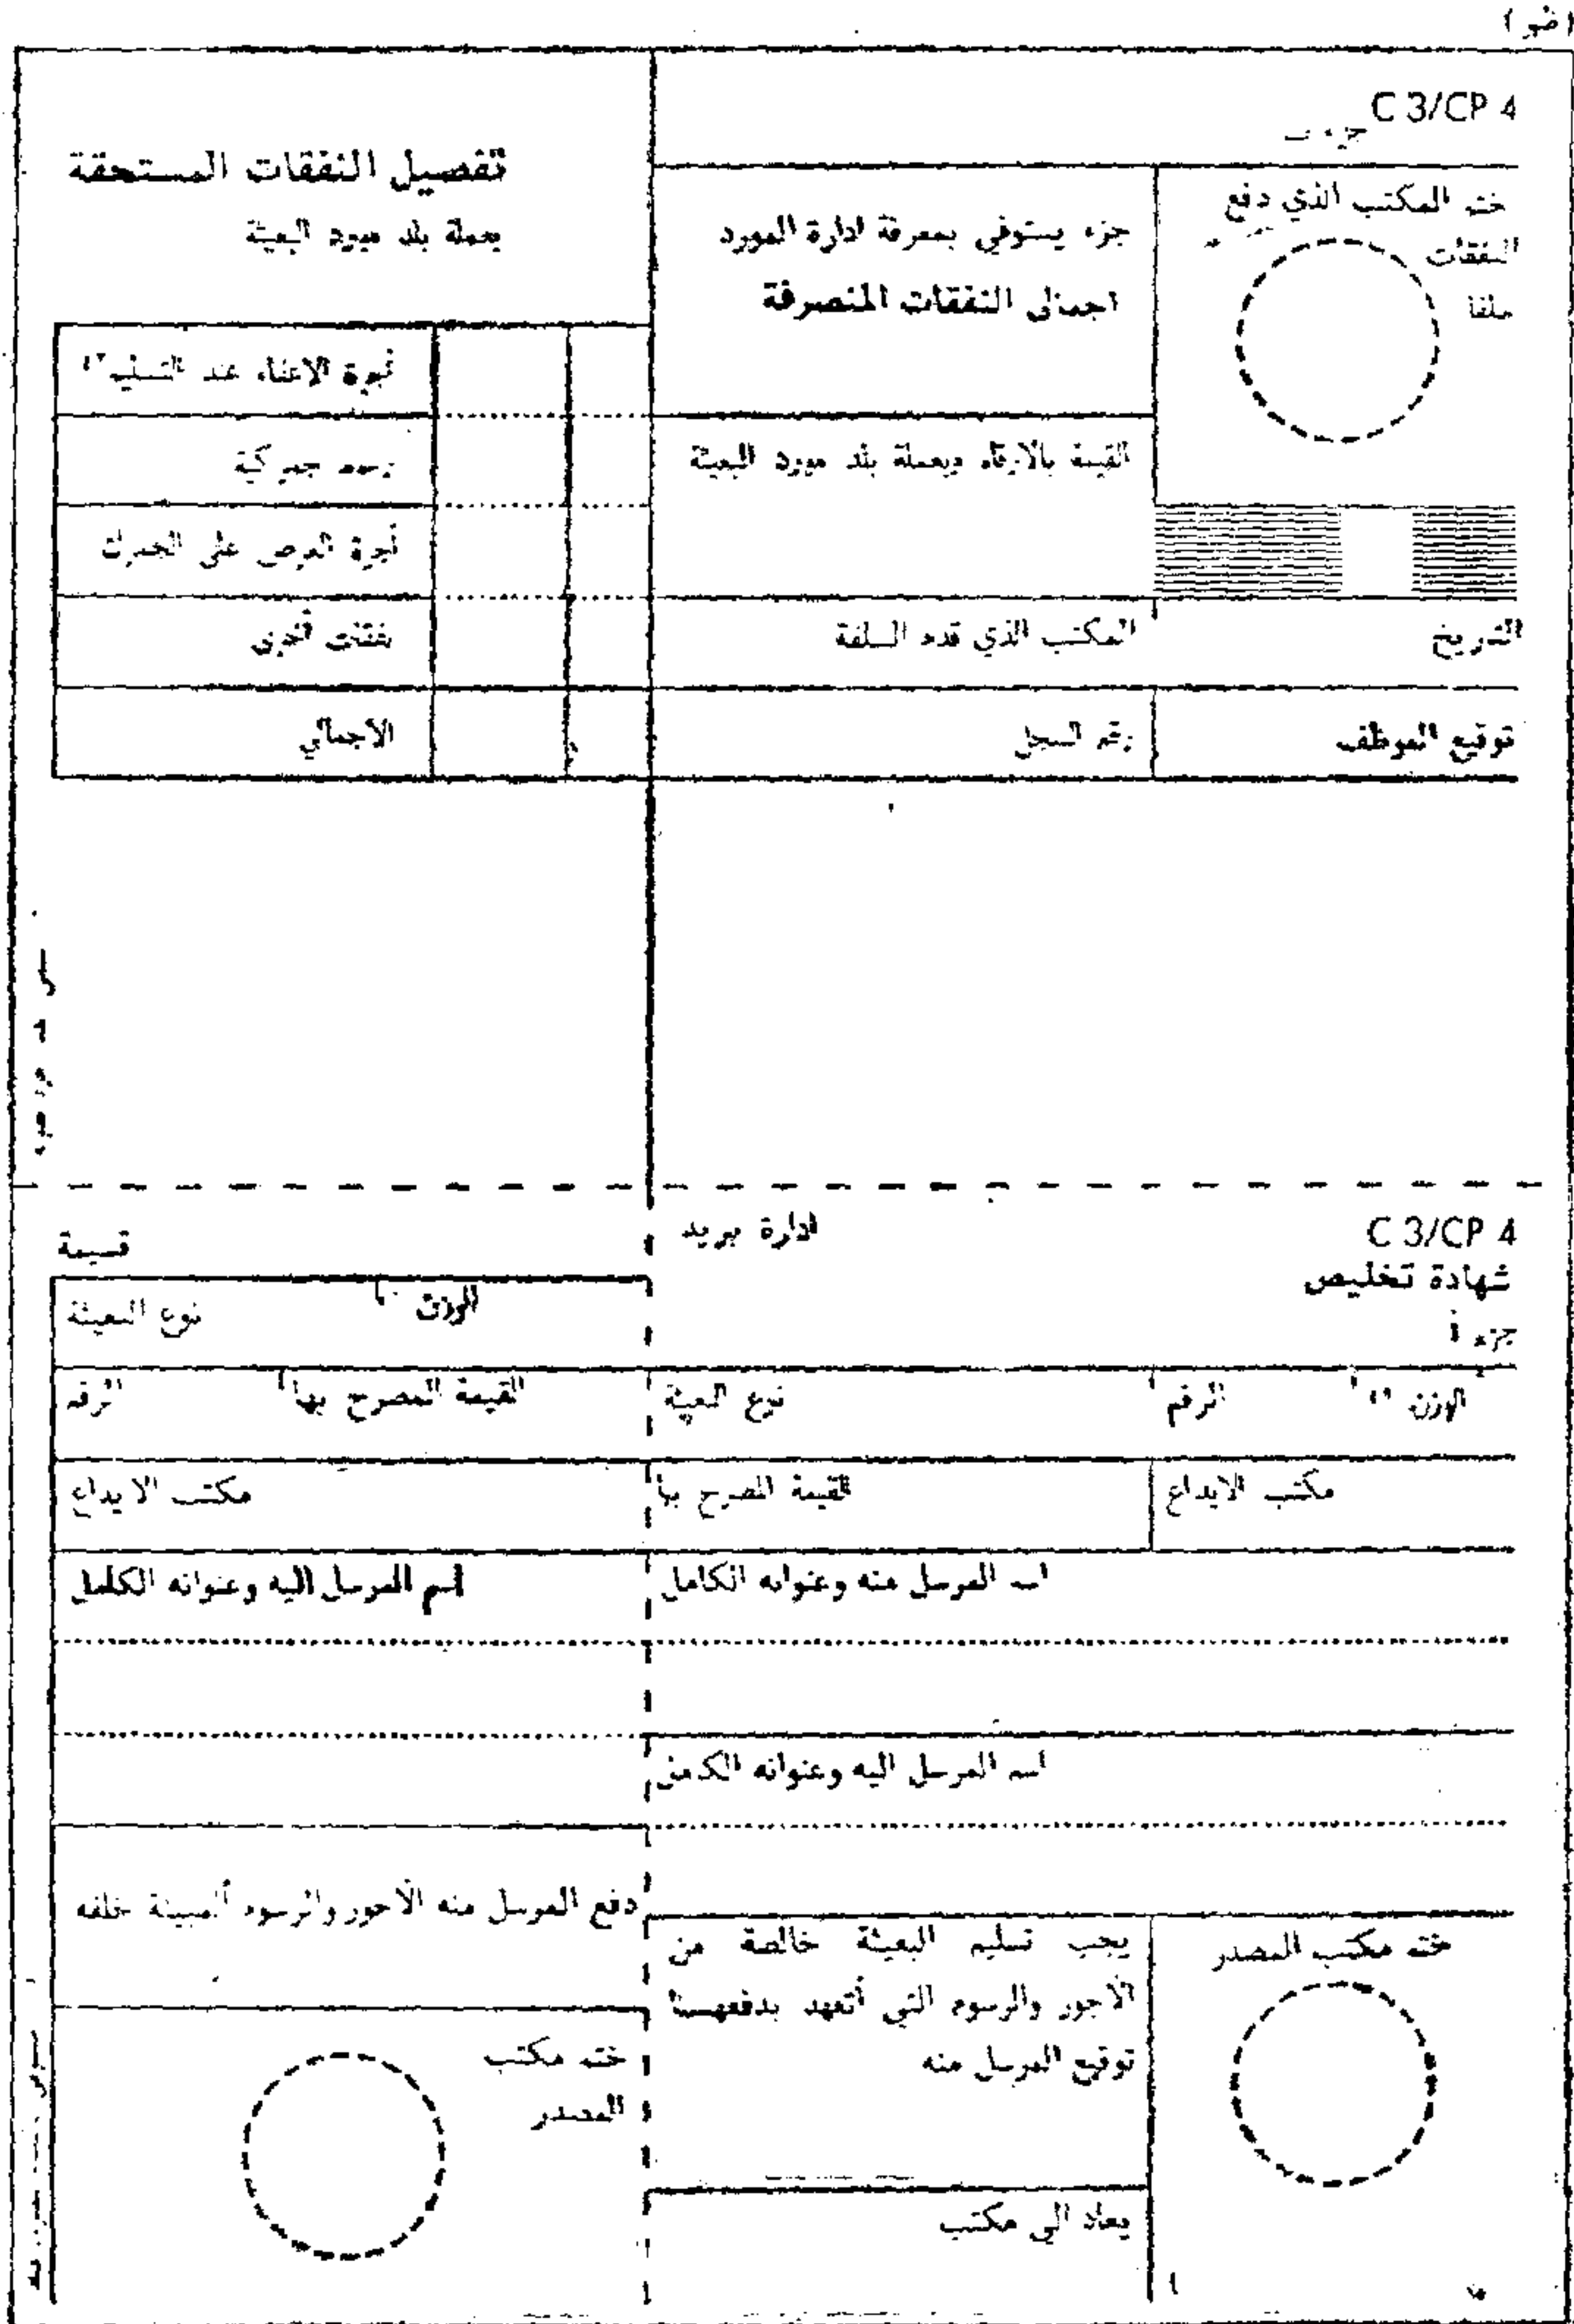 C 3/CP 4
ختم المكتب الذي دفع
النفقات
سلفا
جزء يستوفي بمعرفة ادارة المورد
اجمالى النفقات المنصرفة
القيمة بالارقام وبعملة بلد مورد البعيثة
التاريخ
المكتب الذي قدم السلفة
توقيع الموظف
رقم السجل
تفصيل النفقات المستحقة
بعملة بلد مورد البعيثة
أجرة الاعفاء عند التسليم
رسوم جمركية
أجرة العرض على الجمرك
نفقات أخرى
الاجمالي
C 3/CP 4
ادارة بريد
شهادة تخليص
جزء أ
الوزن
الرقم
نوع البعيثة
مكتب الايداع
القيمة المصرح بها
اسم المرسل منه وعنوانه الكامل
اسم المرسل اليه وعنوانه الكامل
ختم مكتب المصدر
يجب تسليم البعيثة خالصة من
الأجور والرسوم التي أتعهد بدفعها
توقيع المرسل منه
يعاد الى مكتب
قسيمة
نوع البعيثة
الوزن
الرقم
القيمة المصرح بها
مكتب الايداع
اسم المرسل اليه وعنوانه الكامل
دفع المرسل منه الأجور والرسوم المبينة خلفه
ختم مكتب
المصدر